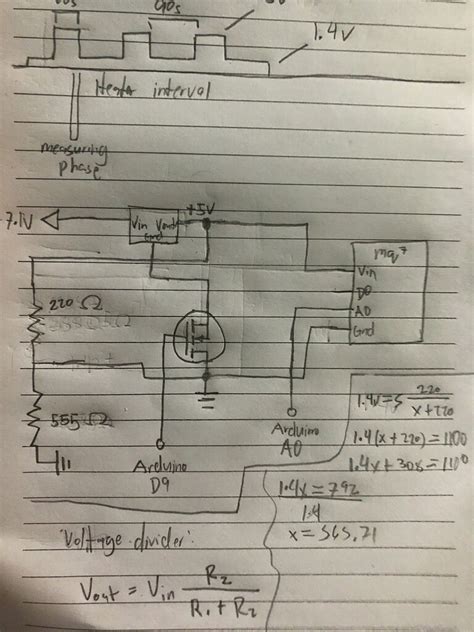 90s
1.4V
Heater interval
measuring
phase
7.1V
Vin Vout
Gnd
+5V
mq7
Vin
D0
A0
Gnd
220 Ω
555 Ω
Arduino
D9
Arduino
A0
1.4V = 5 220 / x+220
1.4(x + 220) = 1100
1.4x + 308 = 1100
1.4x = 792
1.4
x = 565.71
'Voltage divider'
Vout = Vin R2 / R1 + R2